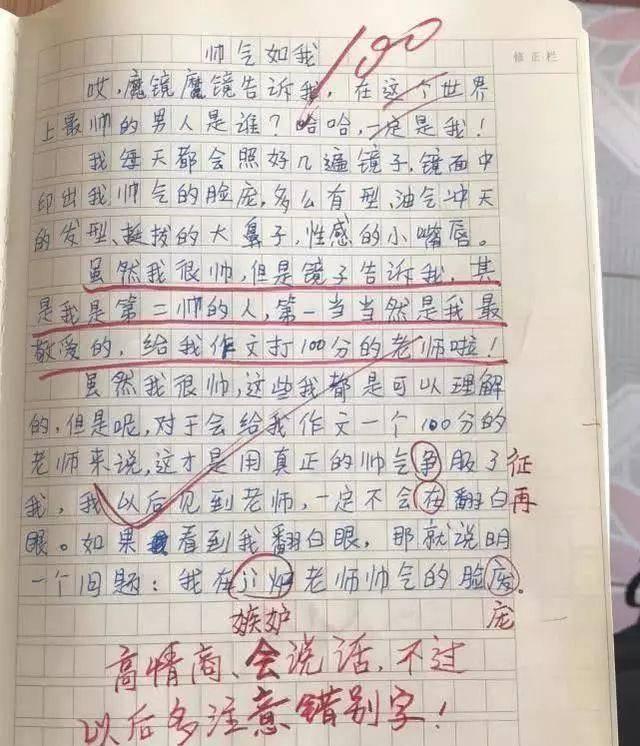 帅气如我
100
修正栏
哎,魔镜魔镜告诉我,在这个世界
上最帅的男人是谁?哈哈,一定是我!
我每天都会照好几遍镜子,镜面中
印出我帅气的脸庞,多么有型、油气冲天
的发型、挺拔的大鼻子,性感的小嘴唇。
虽然我很帅,但是镜子告诉我,其
是我是第二帅的人,第一当当然是我最
敬爱的,给我作文打100分的老师啦!
虽然我很帅,这些我都是可以理解
的,但是呢,对于会给我作文一个100分的
老师来说,这才是用真正的帅气争服了 征
我,我以后见到老师,一定不会在翻白 再
眼。如果看到我翻白眼,那就说明
一个问题:我在老师帅气的脸
嫉妒 庞
高情商、会说话,不过
以后多注意错别字!